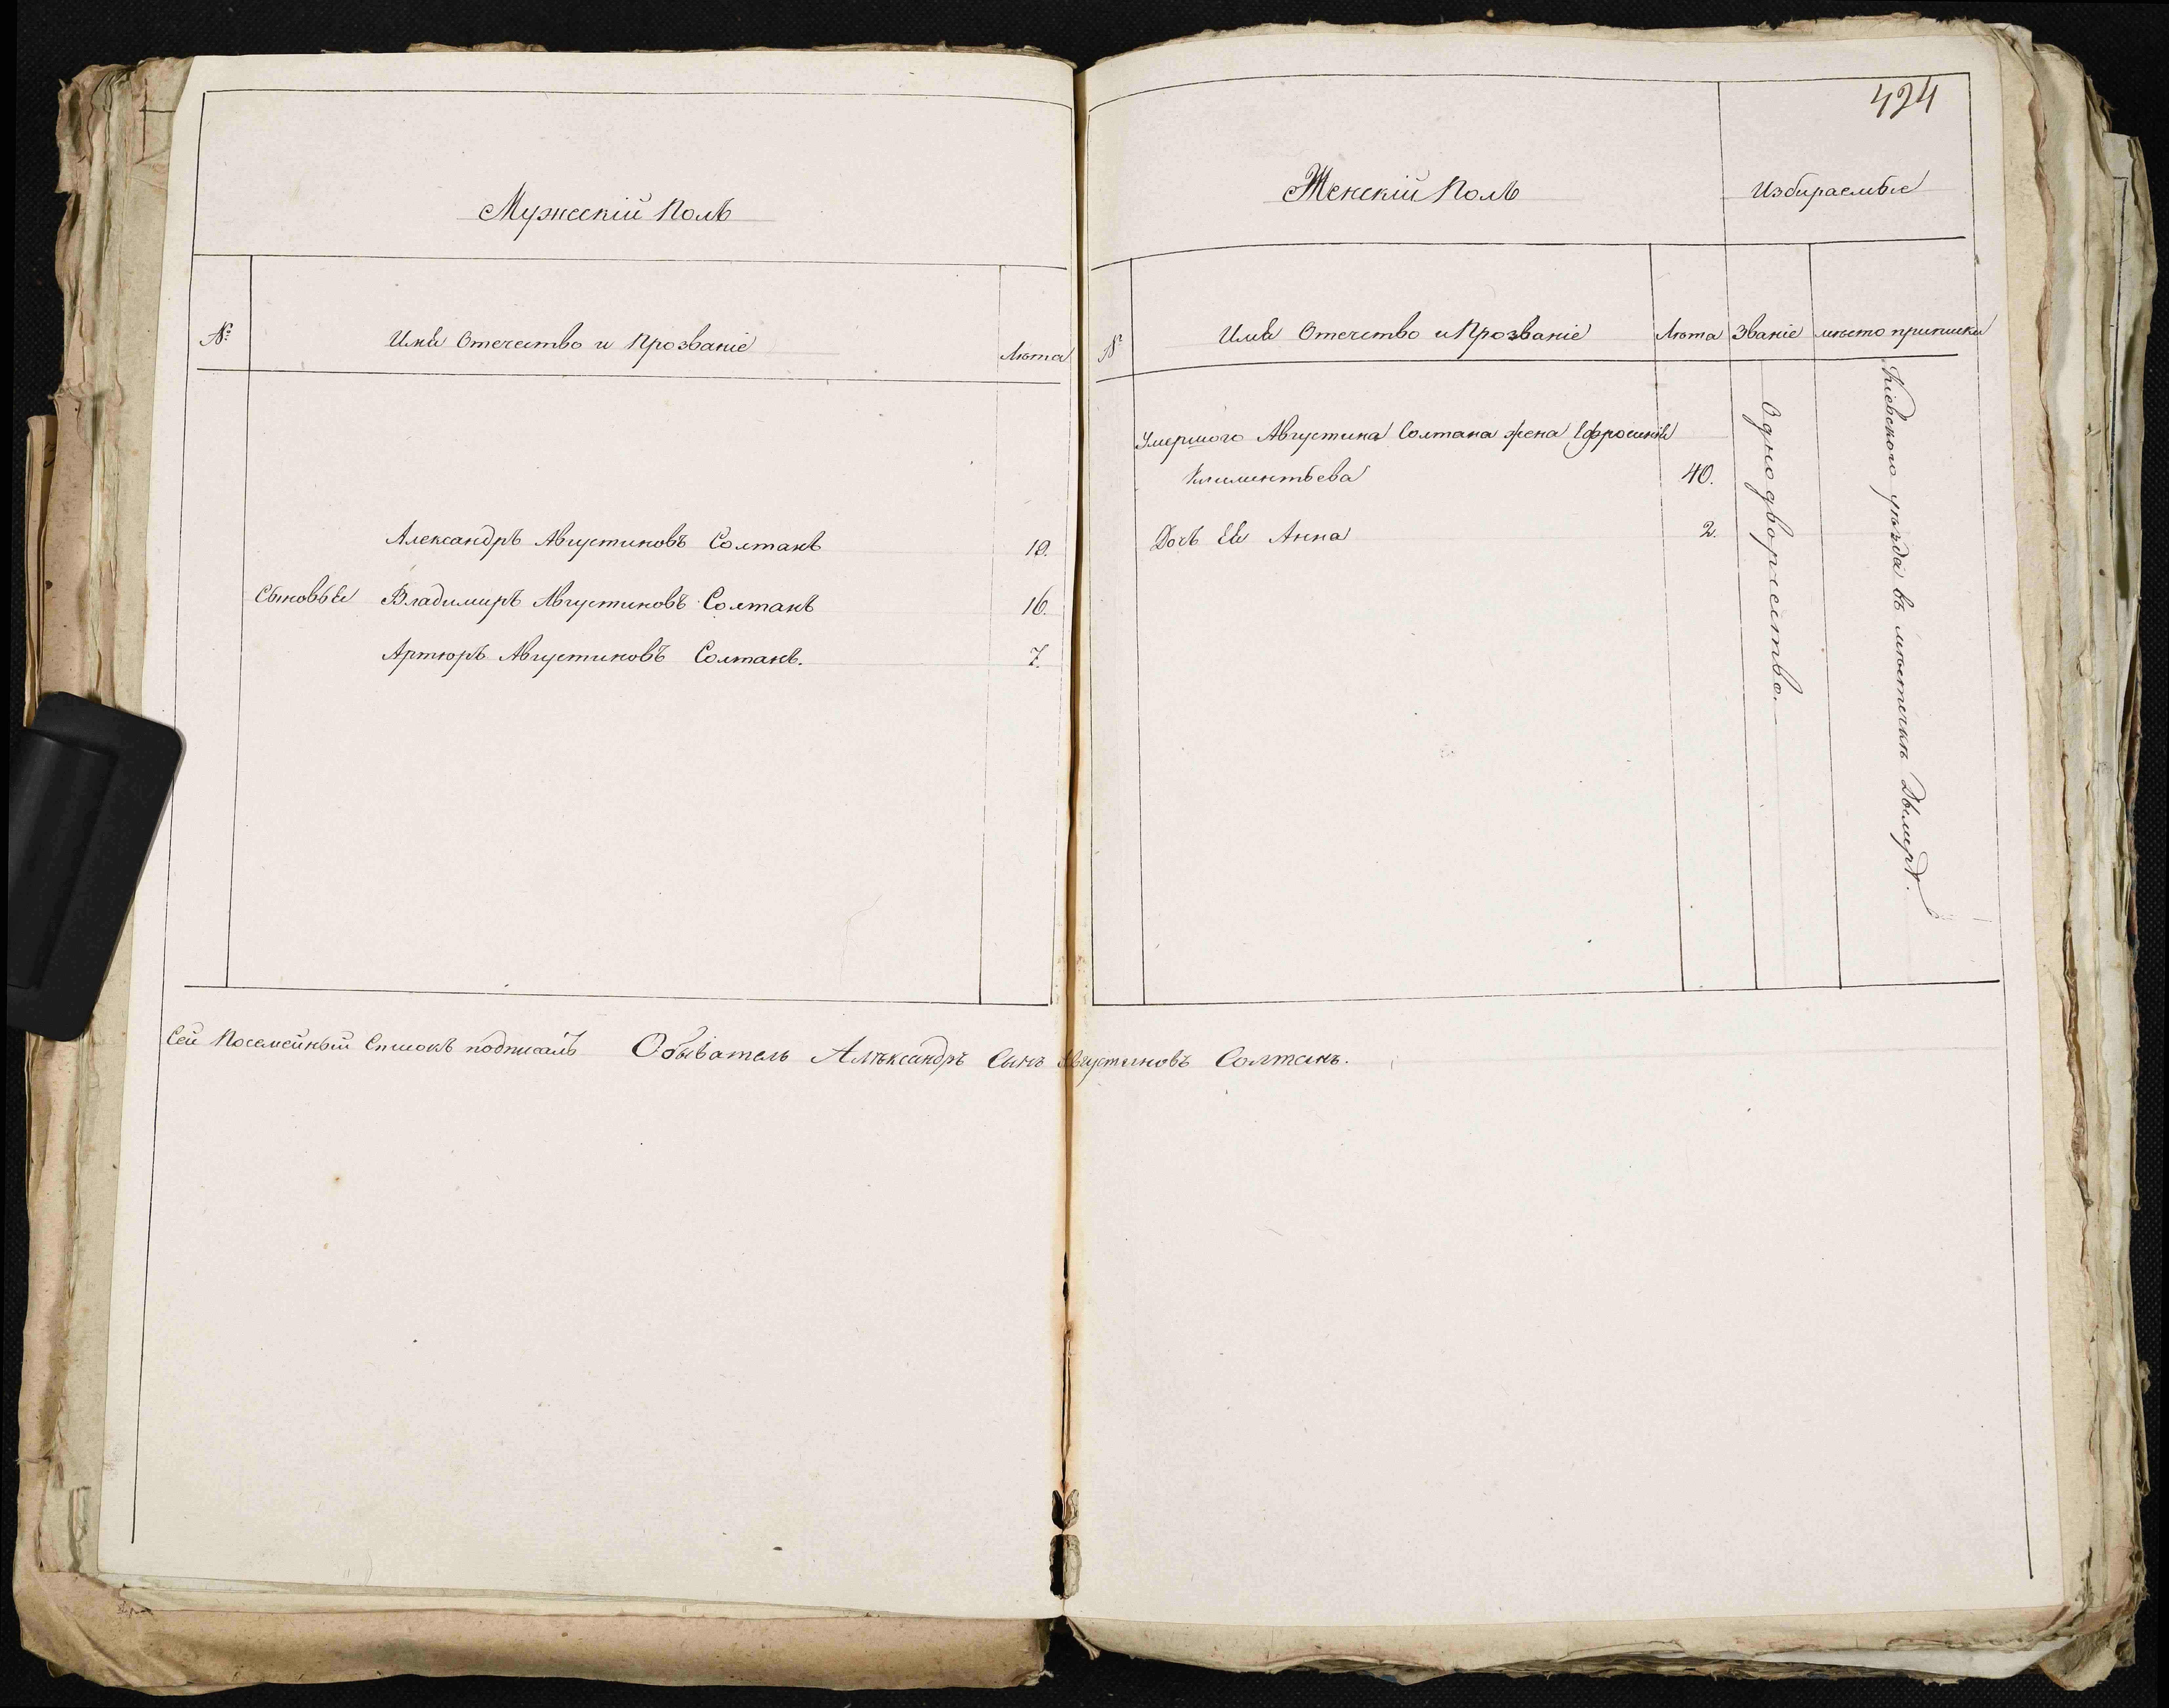 Мужескій Полъ
№
Имя Отечество и Прозваніе
Лѣта
Александръ Августиновъ Солтанъ 19.
Сыновья Владимиръ Августиновъ Солтанъ 16.
Артюръ Августиновъ Солтанъ. 7.
424
Женскій Полъ
Избираемые
№
Имя Отечество и Прозваніе
Лѣта
Званіе
мѣсто приписки
Умершого Августина Солтана жена Ефросинія
Климентьева 40.
Дочь Ея Анна 2.
Однодворчество.
Кіевского уѣзда въ мѣстечкѣ Дымерѣ.
Сей Посемейный Списокъ подписалъ Обыватель Алѣксандръ Сынъ Августиновъ Солтанъ.